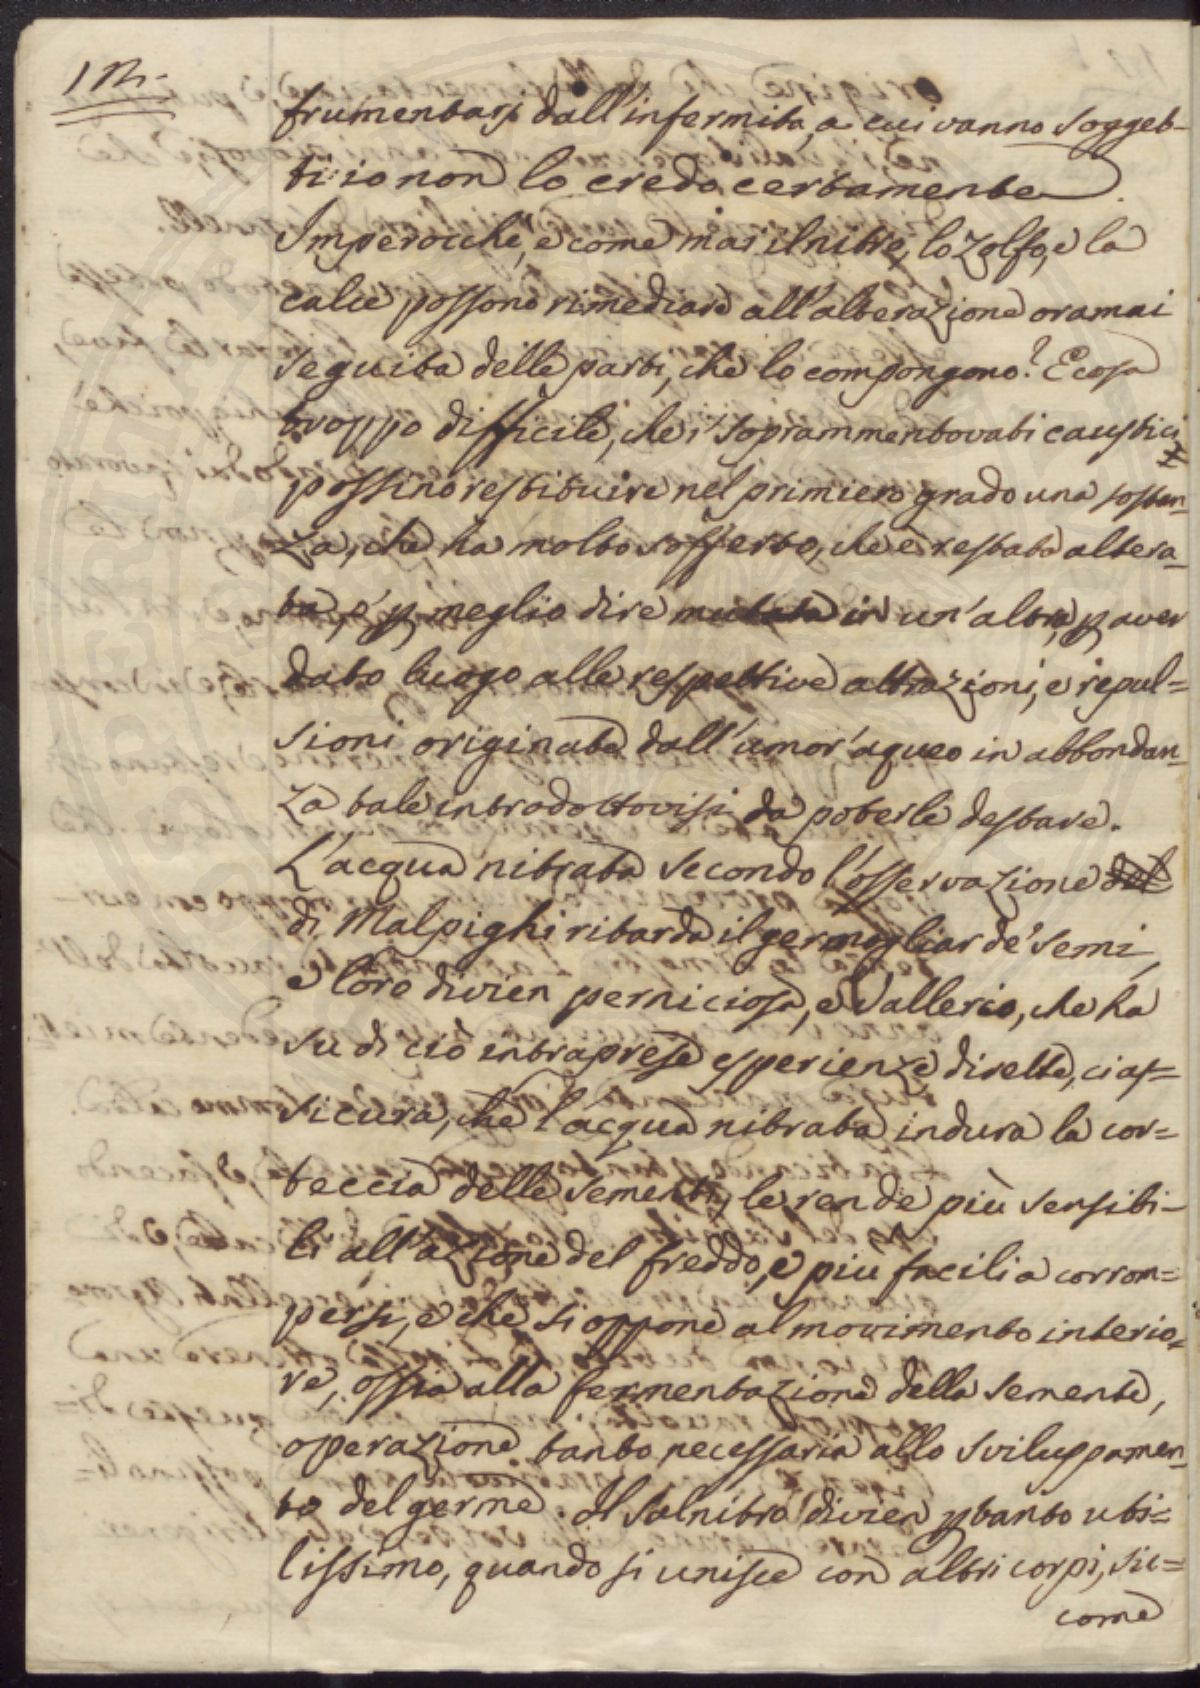 frumentarj dall'infermità, a cui vanno sogget-
ti: io non lo credo certamente.
Imperocchè, e come mai il nitro, lo zolfo, e la
calce possono rimediare all'alterazione oramai
seguita delle parti, che lo compongono? È cosa
troppo difficile, che i soprammentovati caustici
possino restituire nel primiero grado una sostan-
za, che ha molto sofferto, che è restata altera-
ta, o p meglio dire mutata in un'altra, p aver
dato luogo alle respettive attrazioni, e repul=
sioni originate dall'umor'aqueo in abbondan-
za tale introdottovisi da poterle destare.
L'acqua nitrata secondo l'osservazione del
di Malpighi ritarda il germogliar de' semi,
e loro divien perniciosa, e Vallerio, che ha
su di ciò intraprese esperienze dirette, ci as=
sicura, che l'acqua nitrata indura la cor=
teccia delle sementi, le rende più sensibi-
li all'azione del freddo, e più facili a corrom=
persi, e che si oppone al movimento interio=
re, ossia alla fermentazione della semente,
operazione tanto necessaria allo sviluppamen-
to del germe. Il Salnitro divien ptanto uti=
lissimo, quando si unisce con altri corpi, sic=
come